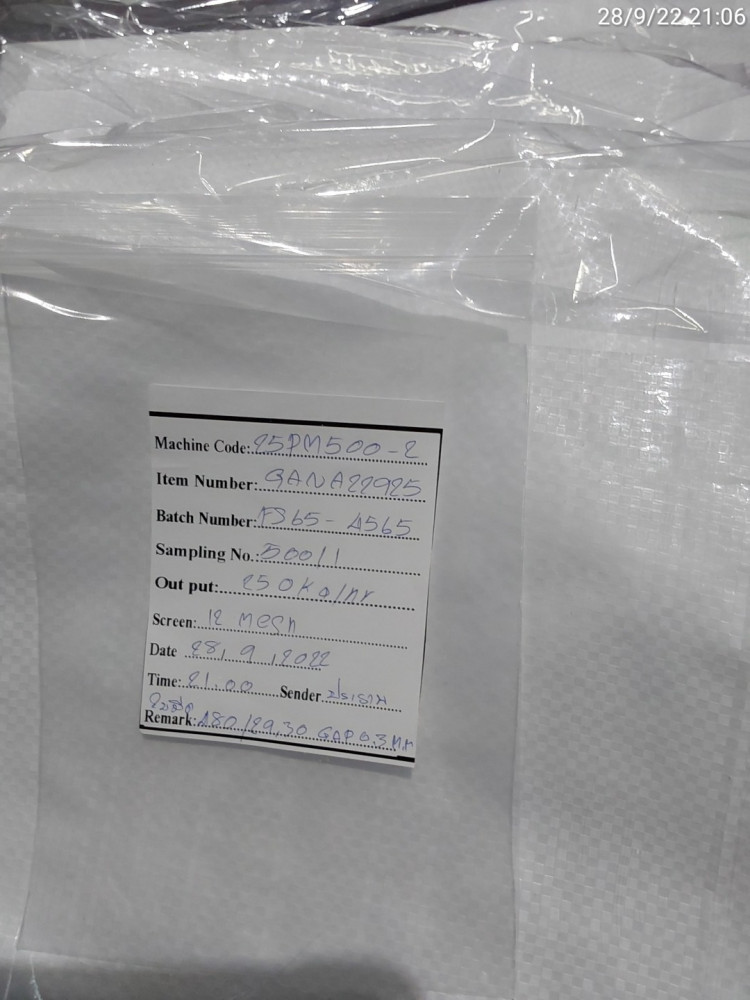 28/9/22 21:06
Machine Code: 25PM500-2
Item Number: GANA22925
Batch Number: FS65-A565
Sampling No.: 50011
Out put: 250Kg/hr
Screen: 12 mesh
Date 28, 9, 2022
Time: 21.00 Sender
Remark: A80/29,30 GAP 0.3